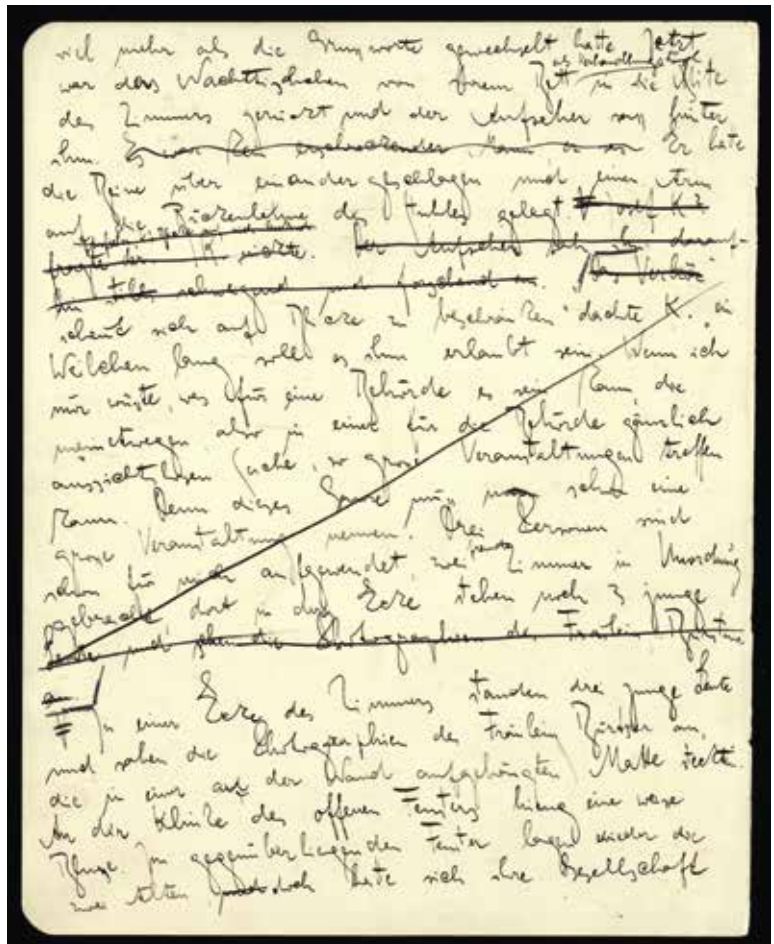 viel mehr als die Grussworte gewechselt hatte. Jetzt
als Verhandlungstisch
war das Nachttischchen von ihrem Bett in die Mitte
des Zimmers gerückt und der Aufseher sass hinter
ihm. Es war kein erschreckender Mann Er hatte
die Beine über einander geschlagen und einen Arm
auf die Rückenlehne des Stuhles gelegt. Josef K?
fragte der K nickte. Der Aufseher sah ihn darauf-
hin still schweigend und forschend an. "Das Verhör
scheint sich auf Blicke zu beschränken" dachte K. "ein
Weilchen lang soll es ihm erlaubt sein. Wenn ich
nur wüsste, was für eine Behörde es sein kann, die
meinetwegen also in einer für die Behörde gänzlich
aussichtslosen Sache, so grosse Veranstaltungen treffen
kann. Denn dieses Ganze muss man schon eine
grosse Veranstaltung nennen. Drei Personen sind
schon für mich aufgewendet, zwei fremde Zimmer in Unordnung
gebracht dort in der Ecke stehen noch 3 junge
Leute und sehen die Photographien des Fräulein Bürstner
an
In einer Ecke des Zimmers standen drei junge Leute
und sahen die Photographien des Fräulein Bürstner an,
die in einer an der Wand aufgehängten Matte steckten.
An der Klinke des offenen Fensters hieng eine weisse
Bluse. Im gegenüberliegenden Fenster lagen wieder die
zwei Alten doch hatte sich ihre Gesellschaft